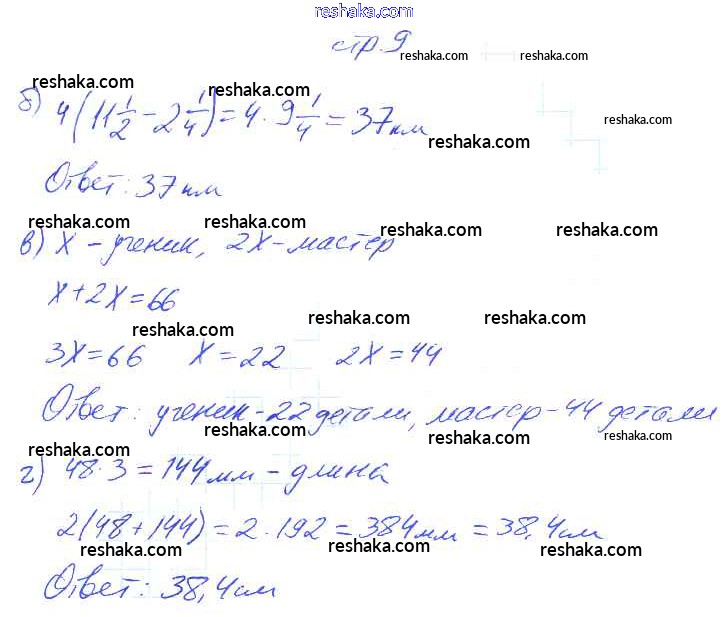 reshaka.com
стр. 9
reshaka.com reshaka.com
reshaka.com reshaka.com
б) 4(11 1/2 - 2 1/4) = 4 · 9 1/4 = 37 км
reshaka.com
reshaka.com
Ответ: 37 км
reshaka.com reshaka.com reshaka.com reshaka.com
в) x - ученик, 2x - мастер
x + 2x = 66
reshaka.com reshaka.com reshaka.com
3x = 66 x = 22 2x = 44
Ответ: ученик - 22 детали, мастер - 44 детали
reshaka.com reshaka.com reshaka.com reshaka.com
г) 48 · 3 = 144 мм - длина
2(48 + 144) = 2 · 192 = 384 мм = 38,4 см
reshaka.com reshaka.com reshaka.com
Ответ: 38,4 см